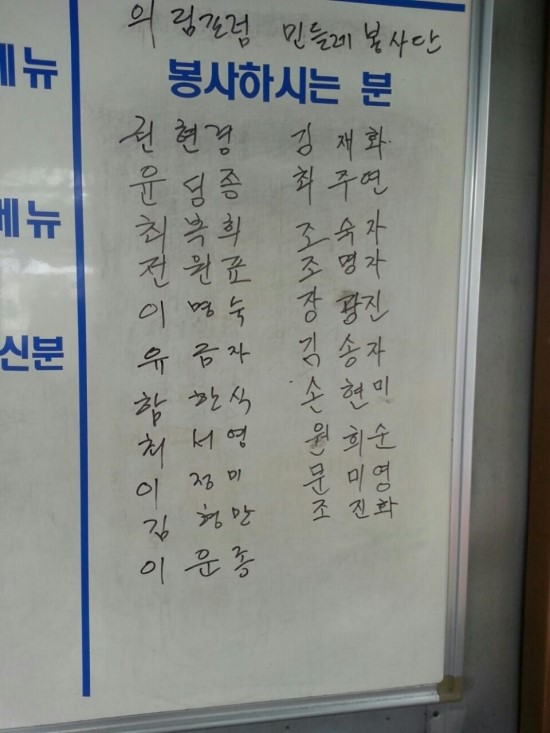 의림포럼 민들레 봉사단
메뉴
봉사하시는 분
권현경 김재화
윤덤종 최주연
최복희 조숙자
메뉴
전원표 조명자
이명숙 장광진
신분
유금자 김송자
함한식 손현미
최서영 원희순
이정미 문미영
김형만 조진화
이운종